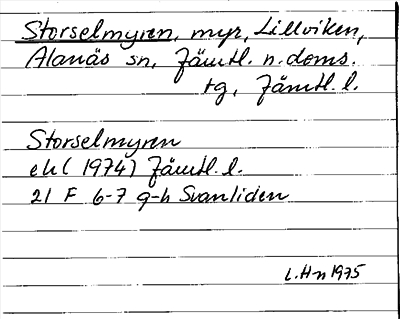 Storselmyren, myr, Lillviken,
Alanäs sn, Jämtl. n. doms.
tg, Jämtl. l.
Storselmyren
ek (1974) Jämtl. l.
21 F 6-7 g-h Svanliden
L.H-n 1975